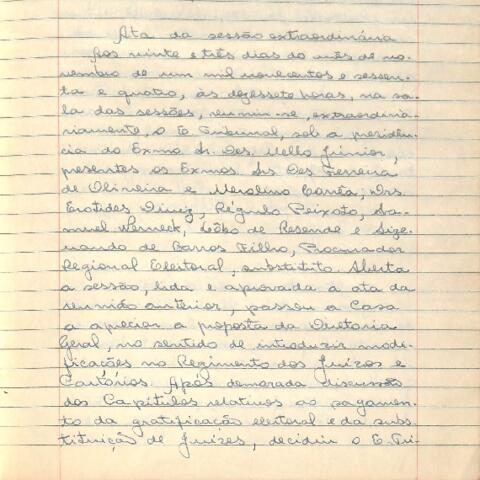 Ata da sessão extraordinária
Aos vinte e três dias do mês de no-
vembro de um mil novecentos e sessen-
ta e quatro, às dezessete horas, na sa-
la das sessões, reuniu-se, extraordina-
riamente, o E. Tribunal, sob a presidên-
cia do Exmo Sr. Des. Mello Júnior,
presentes os Exmos. Srs Des Ferreira
de Oliveira e Merolino Corrêa; Drs.
Erotides Diniz, Régulo Peixoto, Sa-
muel Werneck, Lôbo de Resende e Size-
nando de Barros Filho, Procurador
Regional Eleitoral, substituto. Aberta
a sessão, lida e aprovada a ata da
reunião anterior, passou a Casa
a apreciar a proposta da Diretoria
Geral, no sentido de introduzir modi-
ficações no Regimento dos Juízos e
Cartórios. Após demorada discussão
dos Capítulos relativos ao pagamen-
to da gratificação eleitoral e da subs-
tituição de juízes, decidiu o E. Tri-